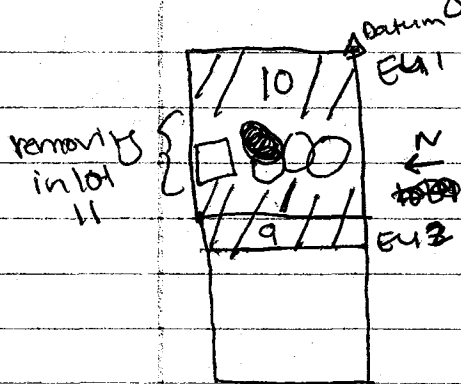 Datum
EU 1
10
removing
in lot
11
N
9
EU 2